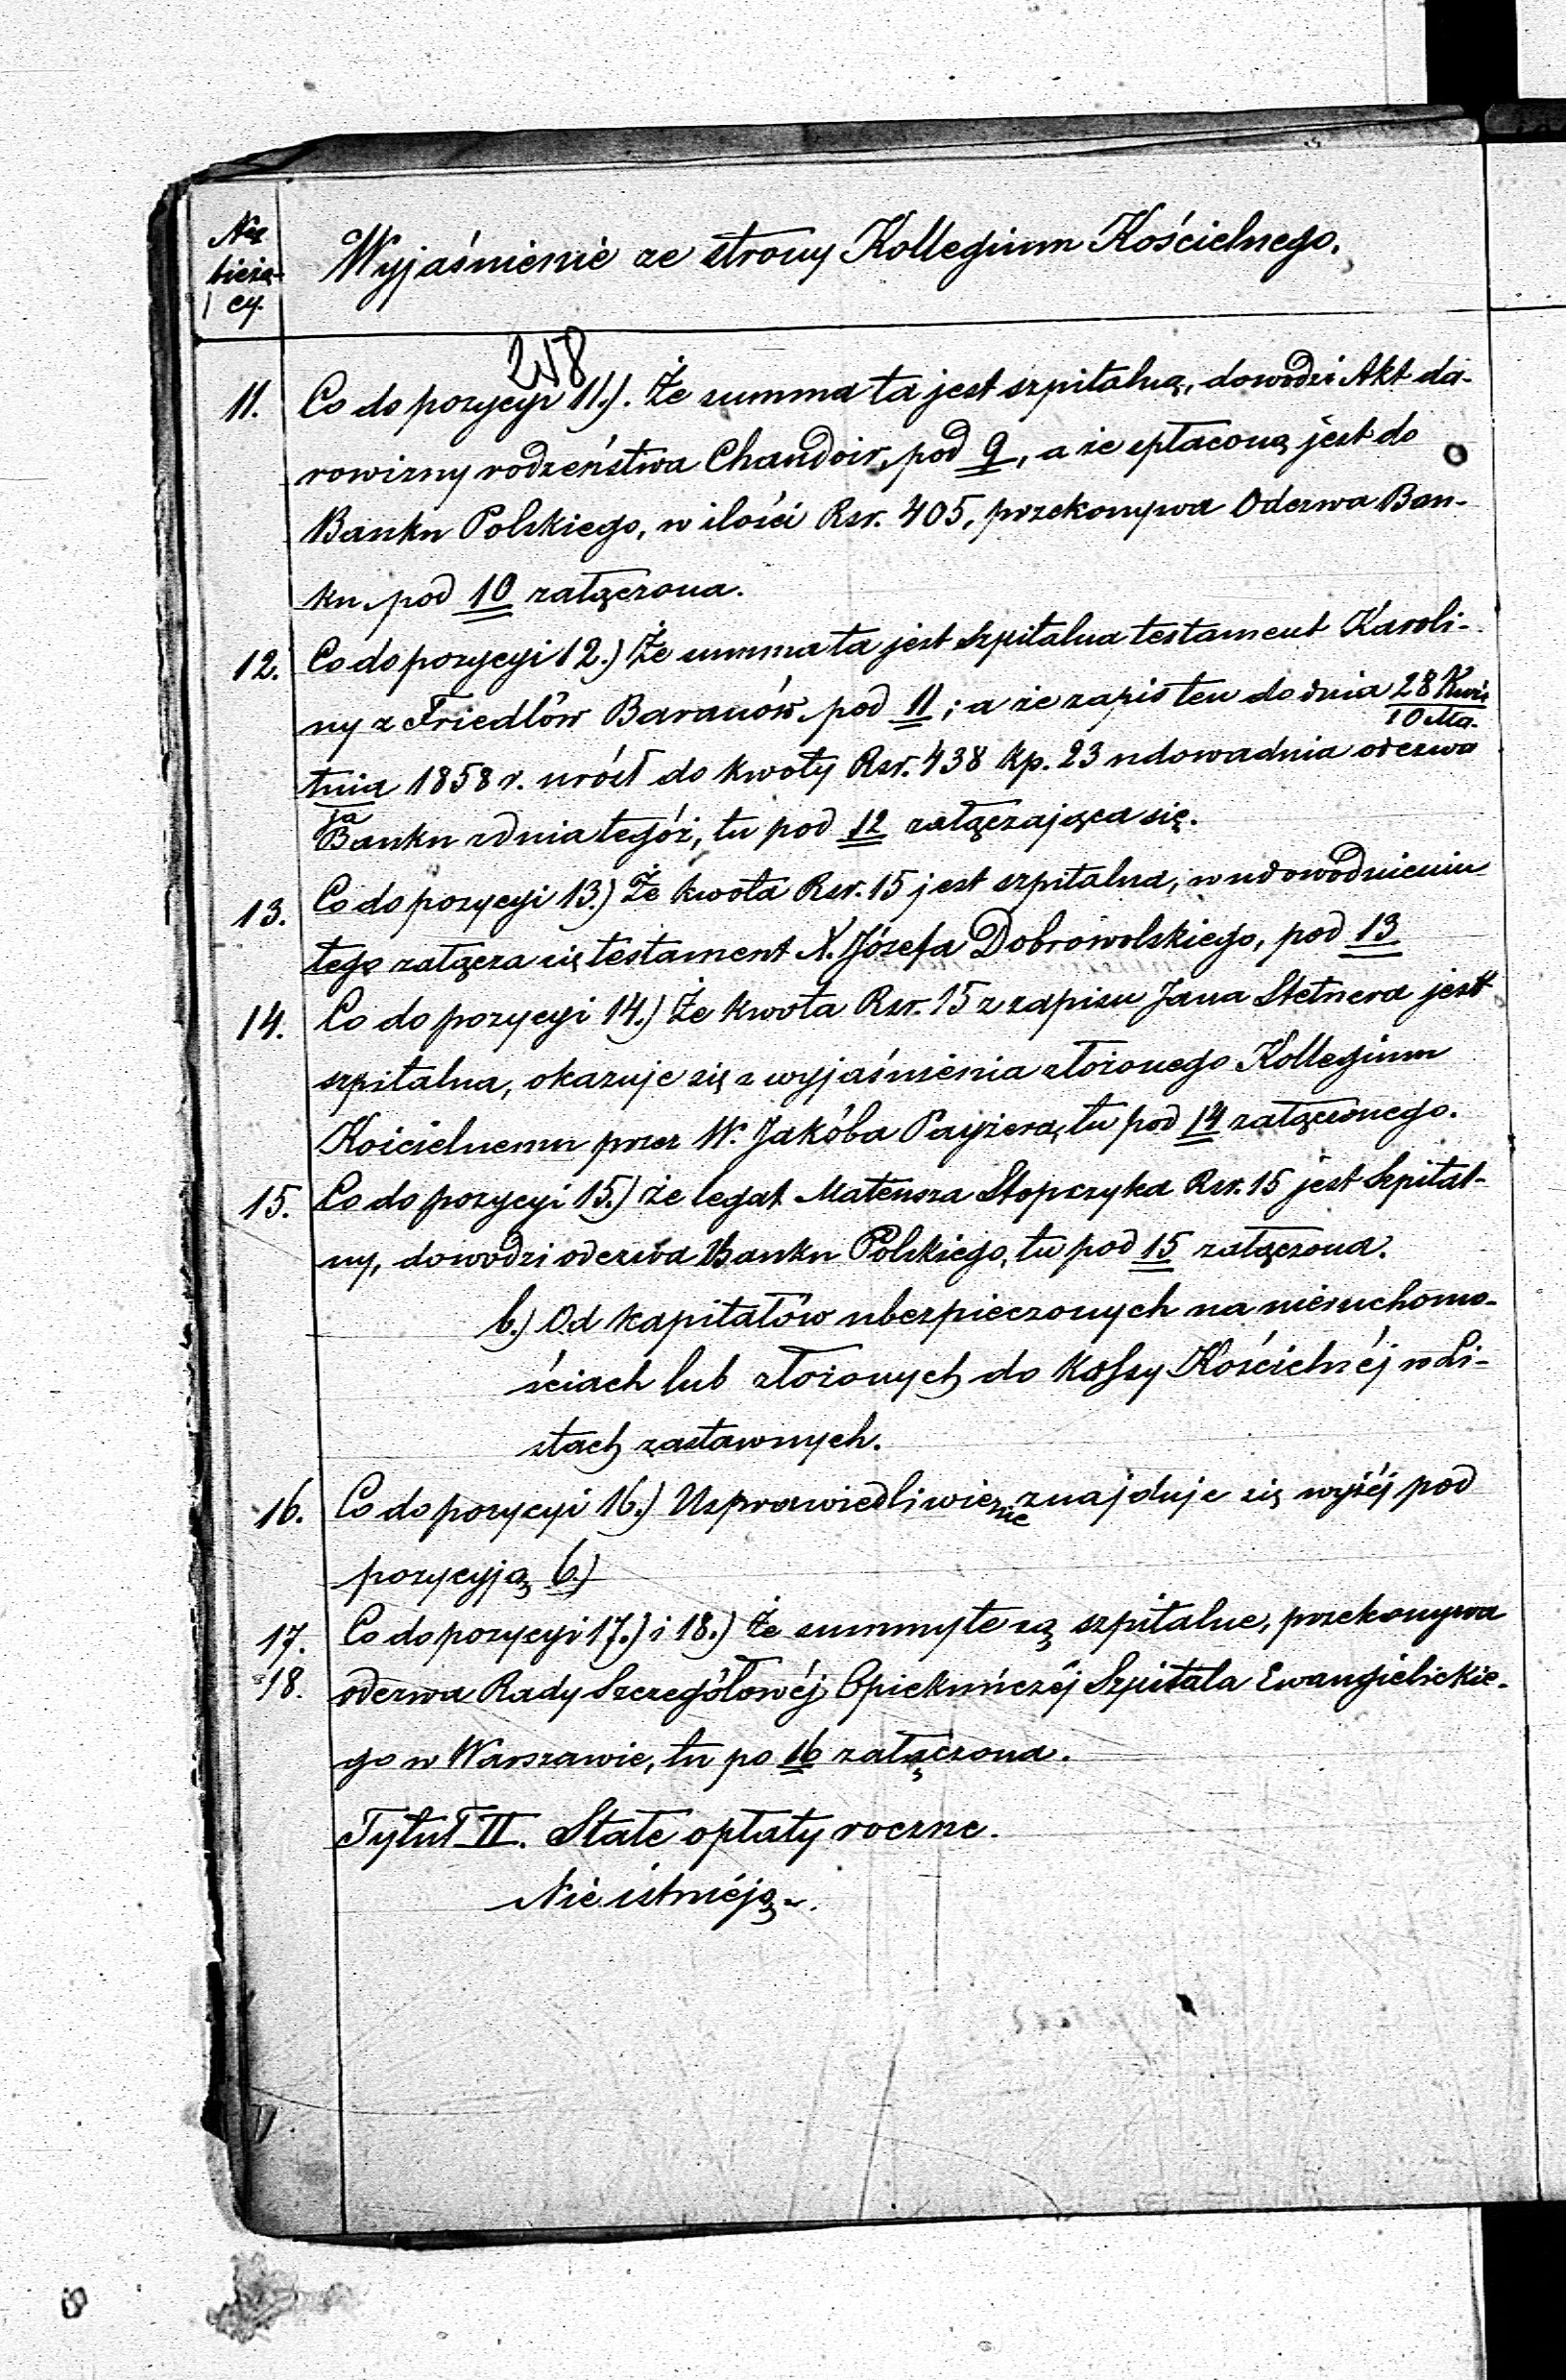 Nr
bieżą-
cy.
Wyjaśnienie ze strony Kollegium Kościelnego.
218
11. Co do pozycyi 11.). Że summa ta jest szpitalną, dowodzi Akt da-
rowizny rodzeństwa Chaudoir, pod 9, a że spłaconą jest do
Banku Polskiego, w ilości Rsr. 405, przekonywa Odezwa Ban-
ku pod 10 załączona.
12. Co do pozycyi 12.) Że summa ta jest Szpitalna testament Karoli-
ny z Friedlów Baranów pod 11; a że zapis ten do dnia 28 Kwie
10 Ma-
tnia 1858 r. urósł do kwoty Rsr. 438 kp. 23 udowadnia odezwa
ja
Banku z dnia tegóż, tu pod 12 załączająca się.
13. Co do pozycyi 13.) Że kwota Rsr. 15 jest szpitalna, w udowodnieniu
tego załącza się testament N. Józefa Dobrowolskiego, pod 13
14. Co do pozycyi 14.) Że kwota Rsr. 15 z zapisu Jana Stetnera jest
szpitalna, okazuje się z wyjaśnienia złożonego Kollegium
Kościelnemu przez W. Jakóba tu pod 14 załączonego.
15. Co do pozycyi 15.) że legat Mateusza Stopczyka Rsr. 15 jest Szpital-
ny, dowodzi odezwa Banku Polskiego, tu pod 15 załączona.
b.) Od kapitałów ubezpieczonych na nieruchomo-
ściach lub złożonych do Kassy Kościelnéj w Li-
stach zastawnych.
16. Co do pozycyi 16.) Usprawiedliwienie znajduje się wyżéj pod
pozycyją 6.)
17. Co do pozycyi 17.) i 18.) Że summy te są szpitalne, przekonywa
18. odezwa Rady Szczegółowéj Opiekuńczéj Szpitala Ewangielickie-
go w Warszawie, tu po 16 załączona.
Tytuł II. Stałe opłaty roczne.
Nie istnieją.